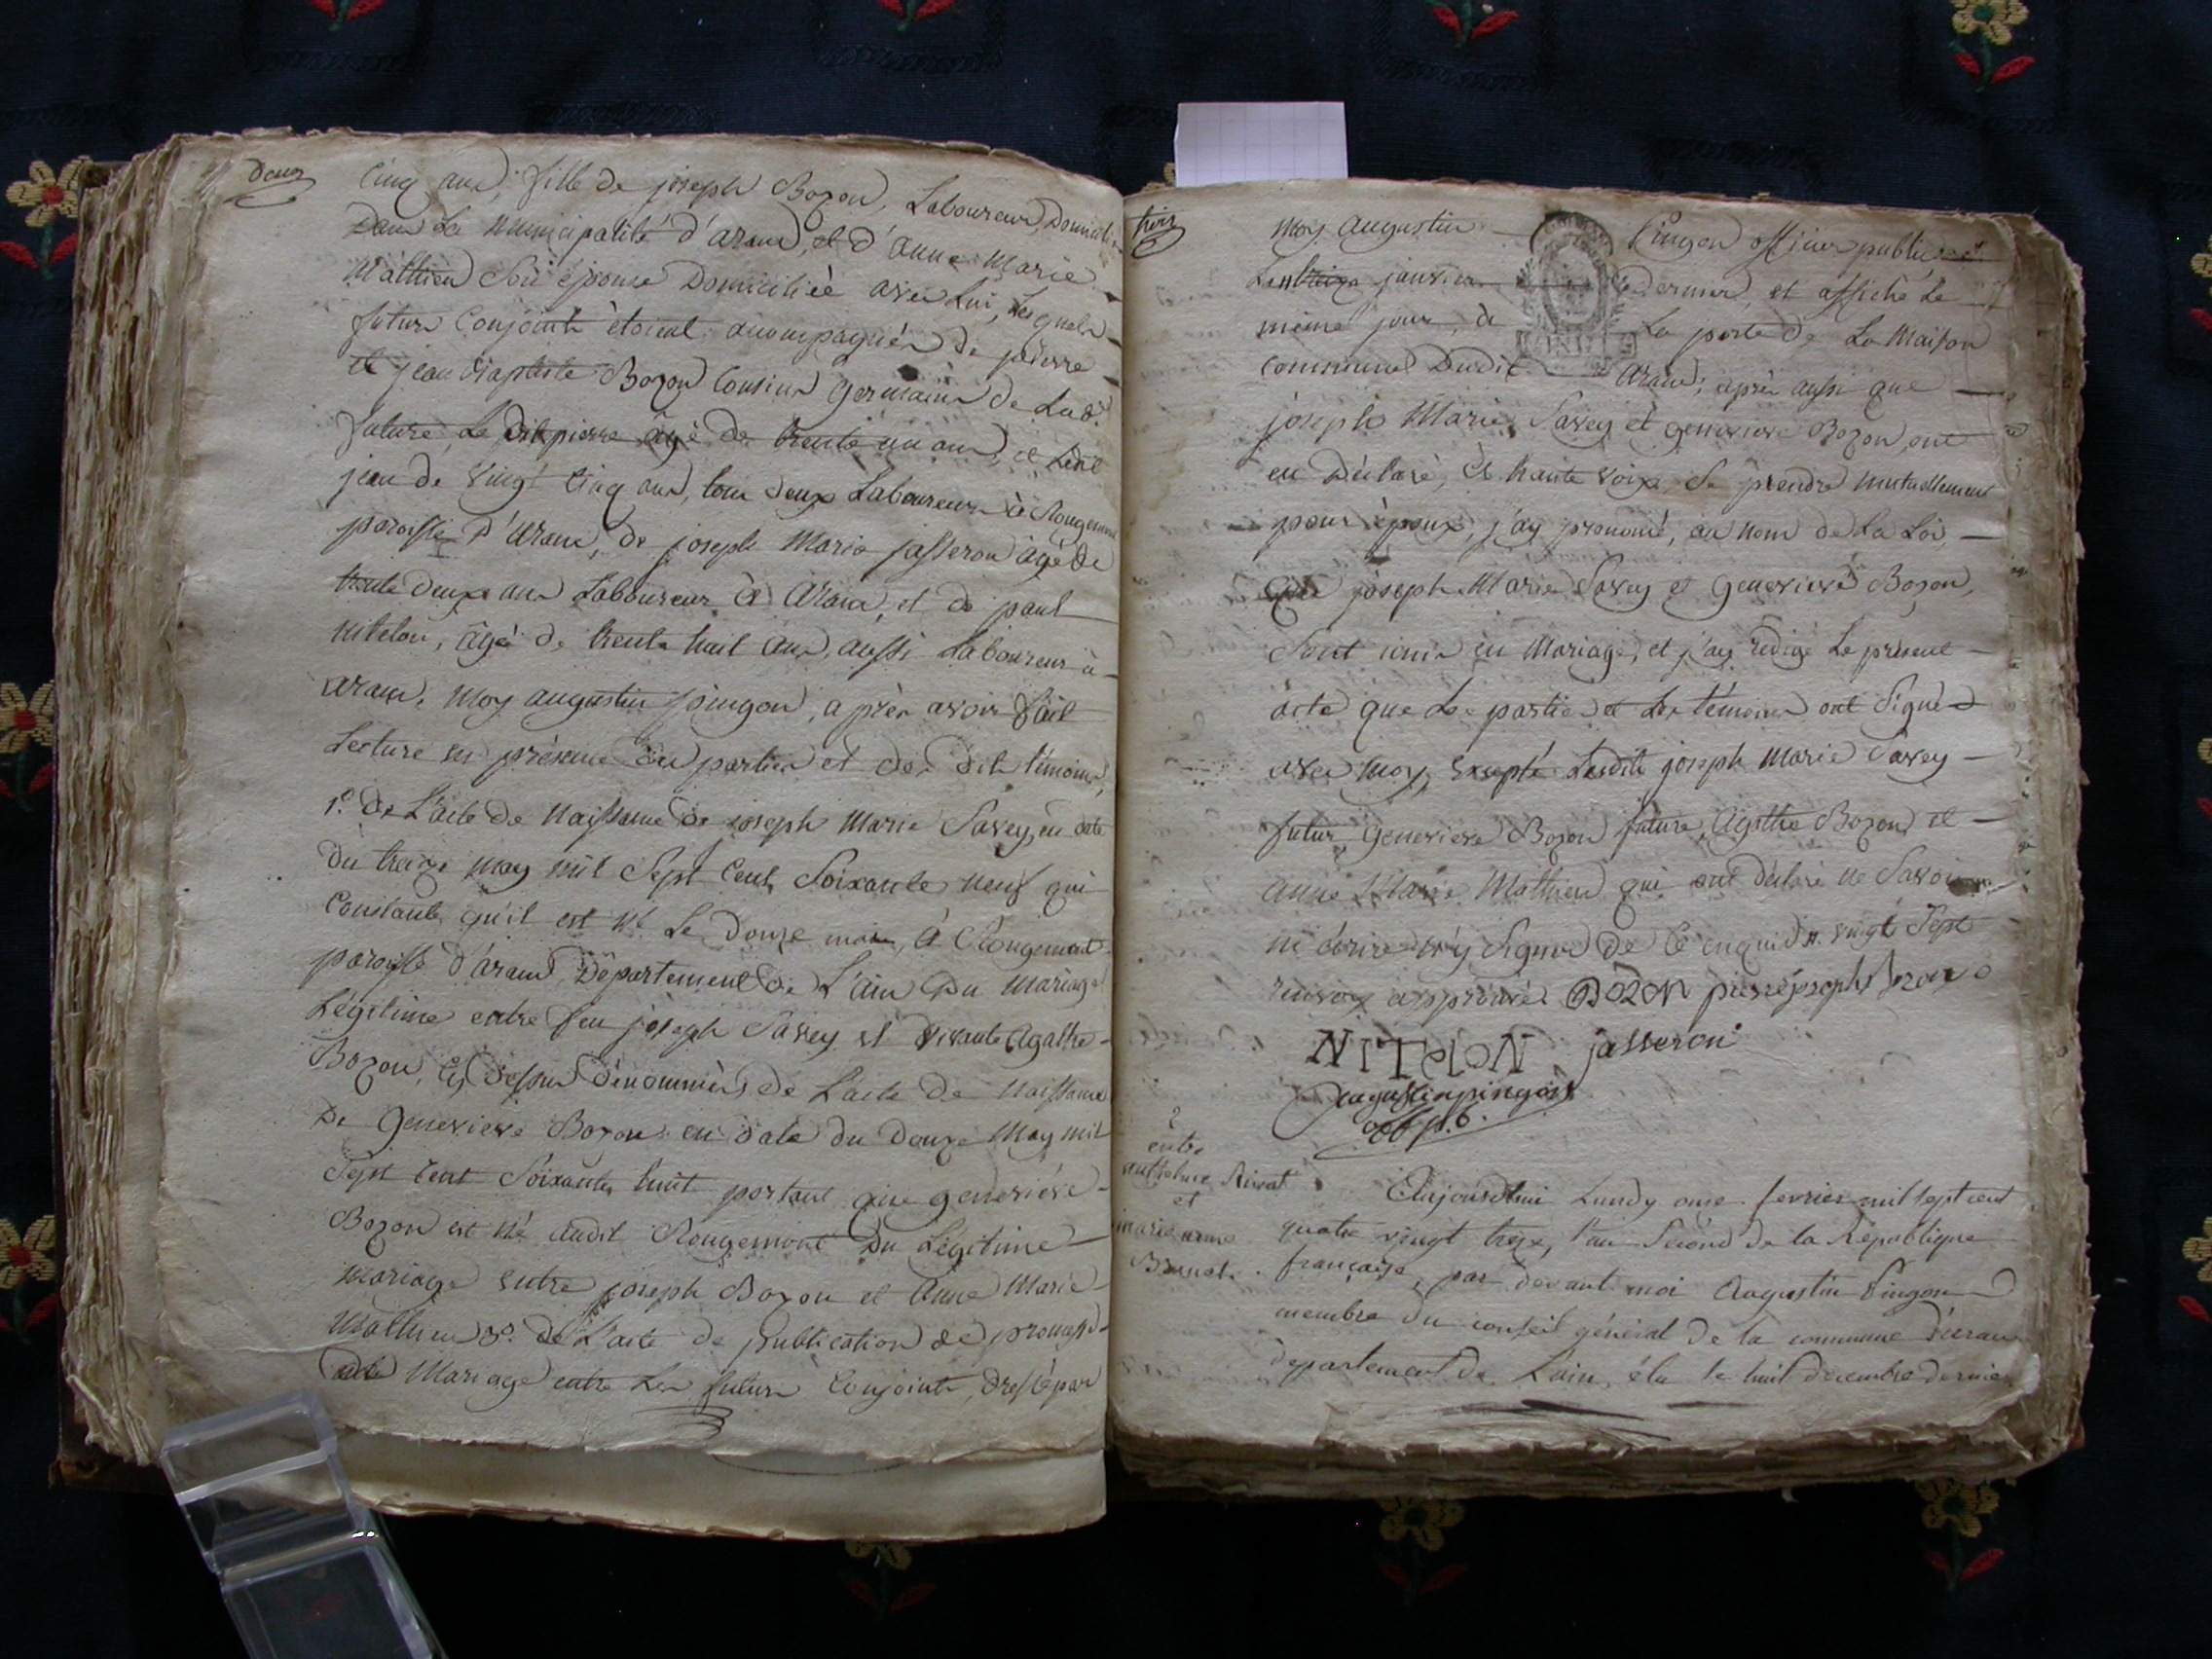 deux
Cinq ans, fille de joseph Bozon, Laboureur, Domicilié
Dans La municipalité d'aranc, et d'anne Marie
Mathieu Son épouse Domiciliée avec Lui, Lesquels
futurs Conjoints étoient accompagnés de pierre
et jean Baptiste Bozon Cousins Germains de Lad.
future, Le dit pierre agé de trente un ans, et Ledit
jean de vingt Cinq ans, tous deux Laboureurs à Rougemont
paroisse d'aranc, de joseph Marie jasseron agé de
trente deux ans Laboureur à Aranc, et de paul
nitelon, âgé de trente huit ans, aussi Laboureur à
aranc. Moy augustin pingon, après avoir fait
Lecture en présence des parties et des dits témoins,
1.º de L'acte de Naissance de joseph Marie Savey, en date
Du treize may mil Sept Cent Soixante neuf qui
Constante qu'il est né Le douze mois, à Rougemont
paroisse d'aranc, Département de L'ain Du Mariage
Légitime entre feu joseph Savey et vivante Agathe
Bozon, Cy dessus dénommées de L'acte de naissance
De Genevieve Bozon en date du douze May mil
Sept Cent Soixante huit portant que genevieve
Bozon est né audit Rougemont Du Légitime
mariage entre joseph Bozon et Anne Marie
Mathieu 3º. de L'acte de publication de promesse
de Mariage entre Les futurs Conjoints, dressé par
trois
Moy Augustin Pingon officier public
janvier dernier, et affiché Le
même jour, à La porte de La Maison
commune Dudit Aranc; après aussi que
joseph Marie Savey et genevieve Bozon, ont
eu déclaré, à haute voix, Se prendre mutuellement
pour époux, j'ay prononcé, au nom de La Loi,
Que joseph Marie Savey et Genevieve Bozon,
Sont unis en Mariage, et j'ay rédigé Le présent
acte que Les parties et Les témoins ont Signés
avec moy, Excepté Lesdits joseph Marie Savey
futur, Genevieve Bozon future, Agathe Bozon, et
anne Marie Mathieu qui ont déclaré ne Savoir
ni écrire n'y Signer de Ce enquis vingt Sept
renvoy approuvé BOZON pierre joseph bozon
jasseron
augustin pingon
off. p. b.
2
entre
anthelme Rivat
et
marie anne
Brunet.
Aujourdhui Lundy onze fevrier mil sept cent
quatre vingt treize, l'an Second de la République
française, par devant moi Augustin Pingon
membre du conseil général de la commune d'aranc
département de Lain, élu le huit decembre dernier